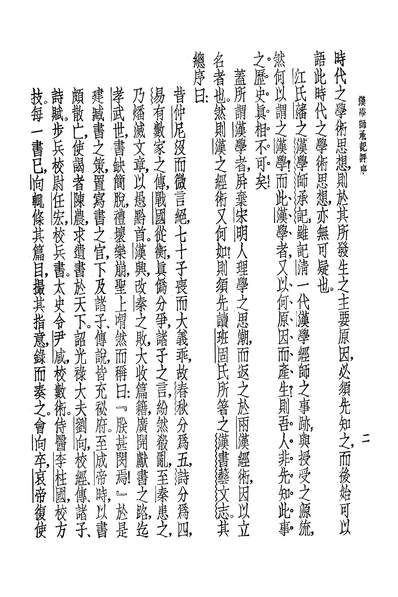 漢學師承記評序
二
時代之學術思想則於其所發生之主要原因必須先知之而後始可以
語此時代之學術思想亦無可疑也。
江氏藩之漢學師承記雖記清一代漢學經師之事跡與授受之源流,
然何以謂之漢學而此漢學者又以何原因而產生則吾人非先知此事
之歷史眞相不可矣!
蓋所謂漢學者屏棄宋明人理學之思潮而返之於兩漢經術,因以立
名者也。然則漢之經術又何如!則須先讀班固氏所著之漢書藝文志。其
總序曰:
昔仲尼沒而微言絕,七十子喪而大義乖故春秋分爲五,詩分爲四,
易有數家之傳,戰國從衡,眞僞分爭,諸子之言紛然殽亂至秦患之,
乃燔滅文章,以愚黔首。漢興改秦之敗,大收篇籍,廣開獻書之路迄
孝武世,書缺簡脫,禮壞樂崩聖上喟然而稱曰:『朕甚閔焉!』於是
建藏書之策置寫書之官下及諸子傳說皆充秘府至成帝時,以書
頗散亡,使謁者陳農求遺書於天下。詔光祿大夫劉向校經傳諸子、
詩賦步兵校尉任宏校兵書,太史令尹咸校數術,侍醫李柱國校方
技。每一書已,向輒條其篇目,撮其指意,錄而奏之。會向卒,哀帝復使